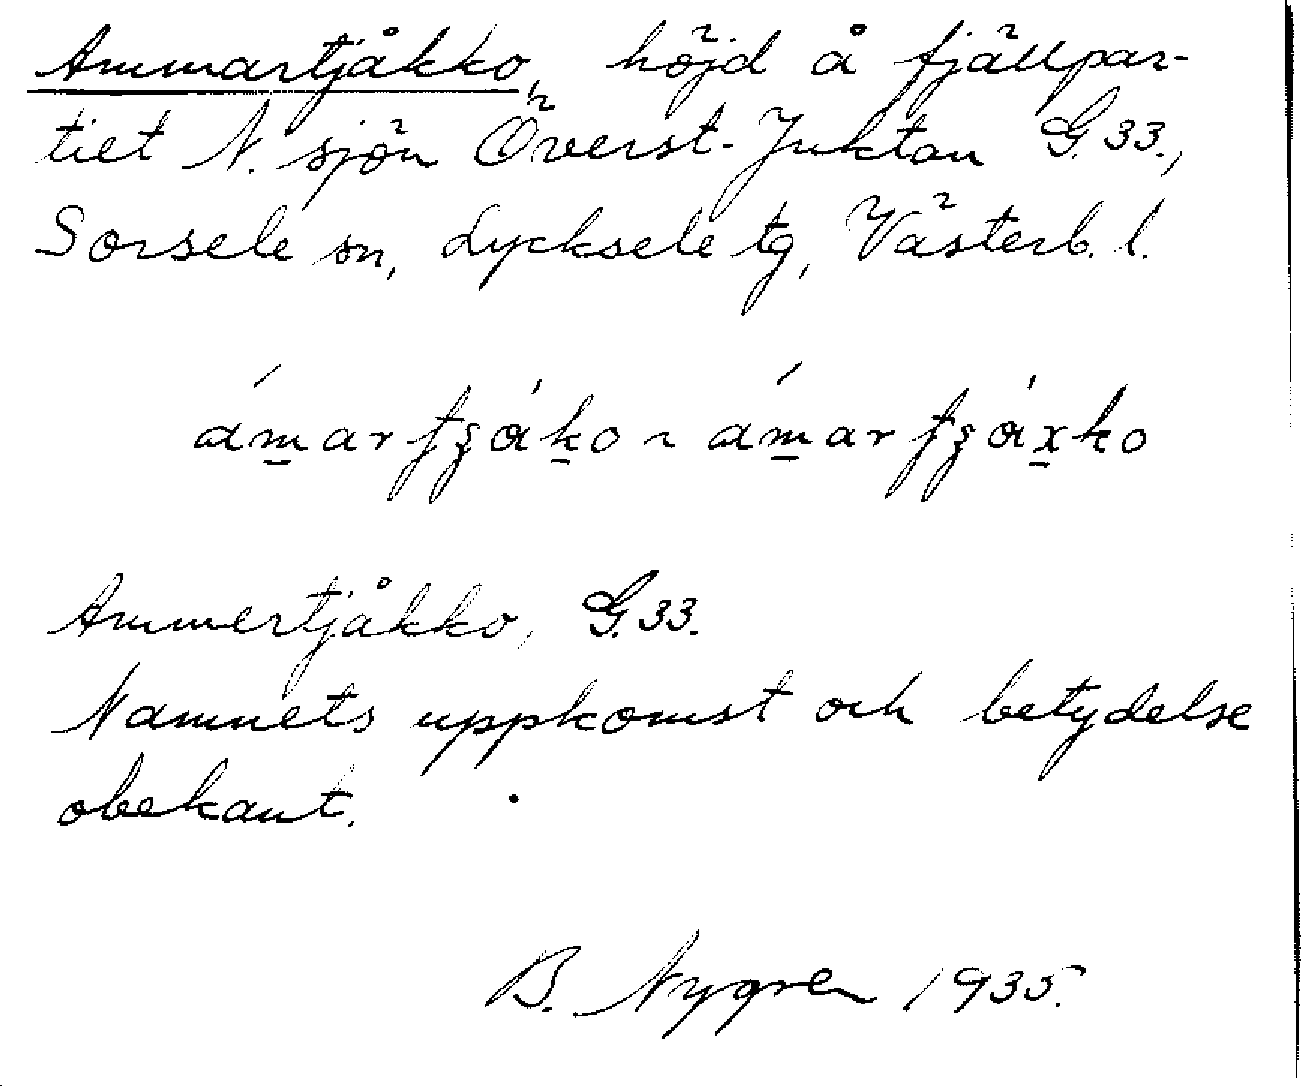 Ammartjåkko, höjd å fjällpar-
tiet N. sjön Överst-Juktan G. 33.,
Sorsele sn, Lycksele tg, Västerb. l.
Ammertjåkko, G. 33.
Namnets uppkomst och betydelse
obekant.
B. Nygren 1935.